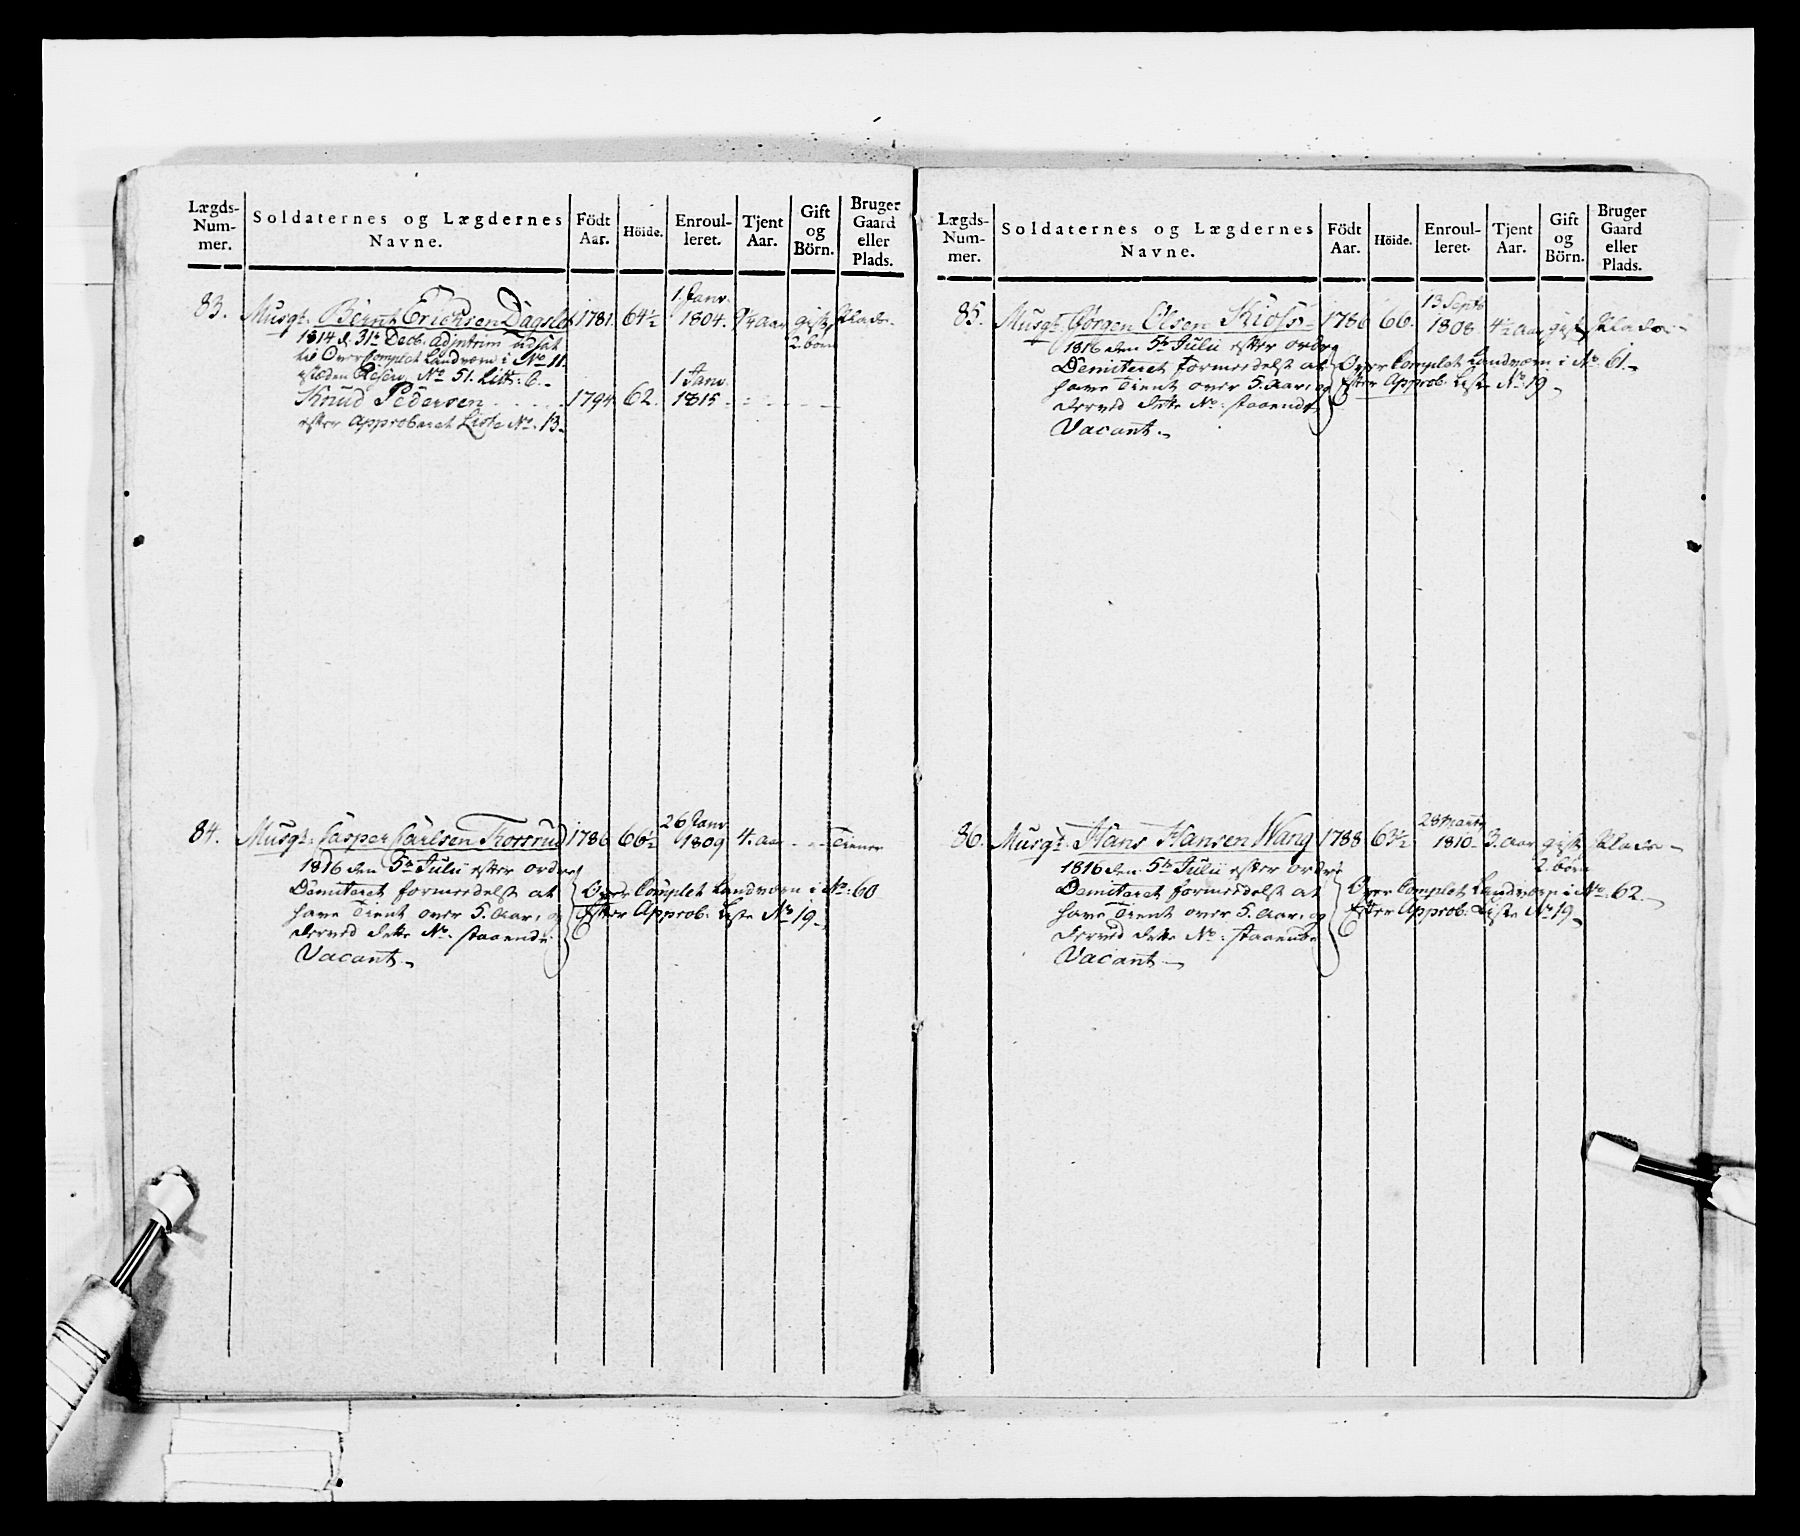 Lægds-Num-mer. Soldaternes og Lægdernes Navne. Födt Aar. Höide. Enroul-leret. Tjent Aar. Gift og Börn. Bruger Gaard eller Plads.
1. Janv.
83. Musqt. Bernt Erichsen Dagsled 1781. 64½ 1804. 9¼ aar gift Plads.
2. börn
1814 d. 31te Decb. adjntrim udsat
til Over Complet Landværn i No 11.
istæden Reserv No 51. Litr: C.
1 Janv.
Knud Pedersen 1794 62. 1815.
efter Approberet Liste No. 13
26 Janv
84. Musqt. Casper Carlsen Thorsrud 1786 66½ 1809 4. aar Tiener
1816 den 5te Julii efter ordre
Demiteret formedelst at Over Complet Landværn i No. 60
have Tient over 5. Aar, og Efter Approb. Liste No 19
derved dette No. staaende
Vacant
Lægds-Num-mer. Soldaternes og Lægdernes Navne. Födt Aar. Höide. Enroul-leret. Tjent Aar. Gift og Börn. Bruger Gaard eller Plads.
13 Septb
85. Musqt. Jörgen Olsen Kioss 1786 66. 1808 4½ aar gift Plads
1816 den 5te Julii efter ordre
Demiteret formedelst at Over Complet Landværn i No. 61.
have Tient over 5. Aar, og Efter Approb. Liste No. 19
derved dette No. staaende
Vacant
28 Martz
86. Musqt. Hans Hansen Wang 1788 63½ 1810 3. aar gift Plads
2. börn
1816 den 5te Julii efter ordre
Demiteret formedelst at Over Complet Landværn i No. 62.
have Tient over 5. Aar, og Efter Approb. Liste No 19
derved dette No. staaende
Vacant